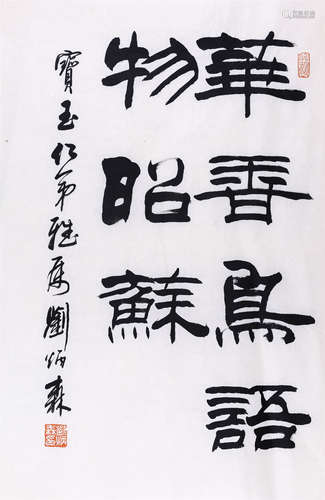 華香鳥語
物昭蘇
寶玉仁弟雅属劉炳森